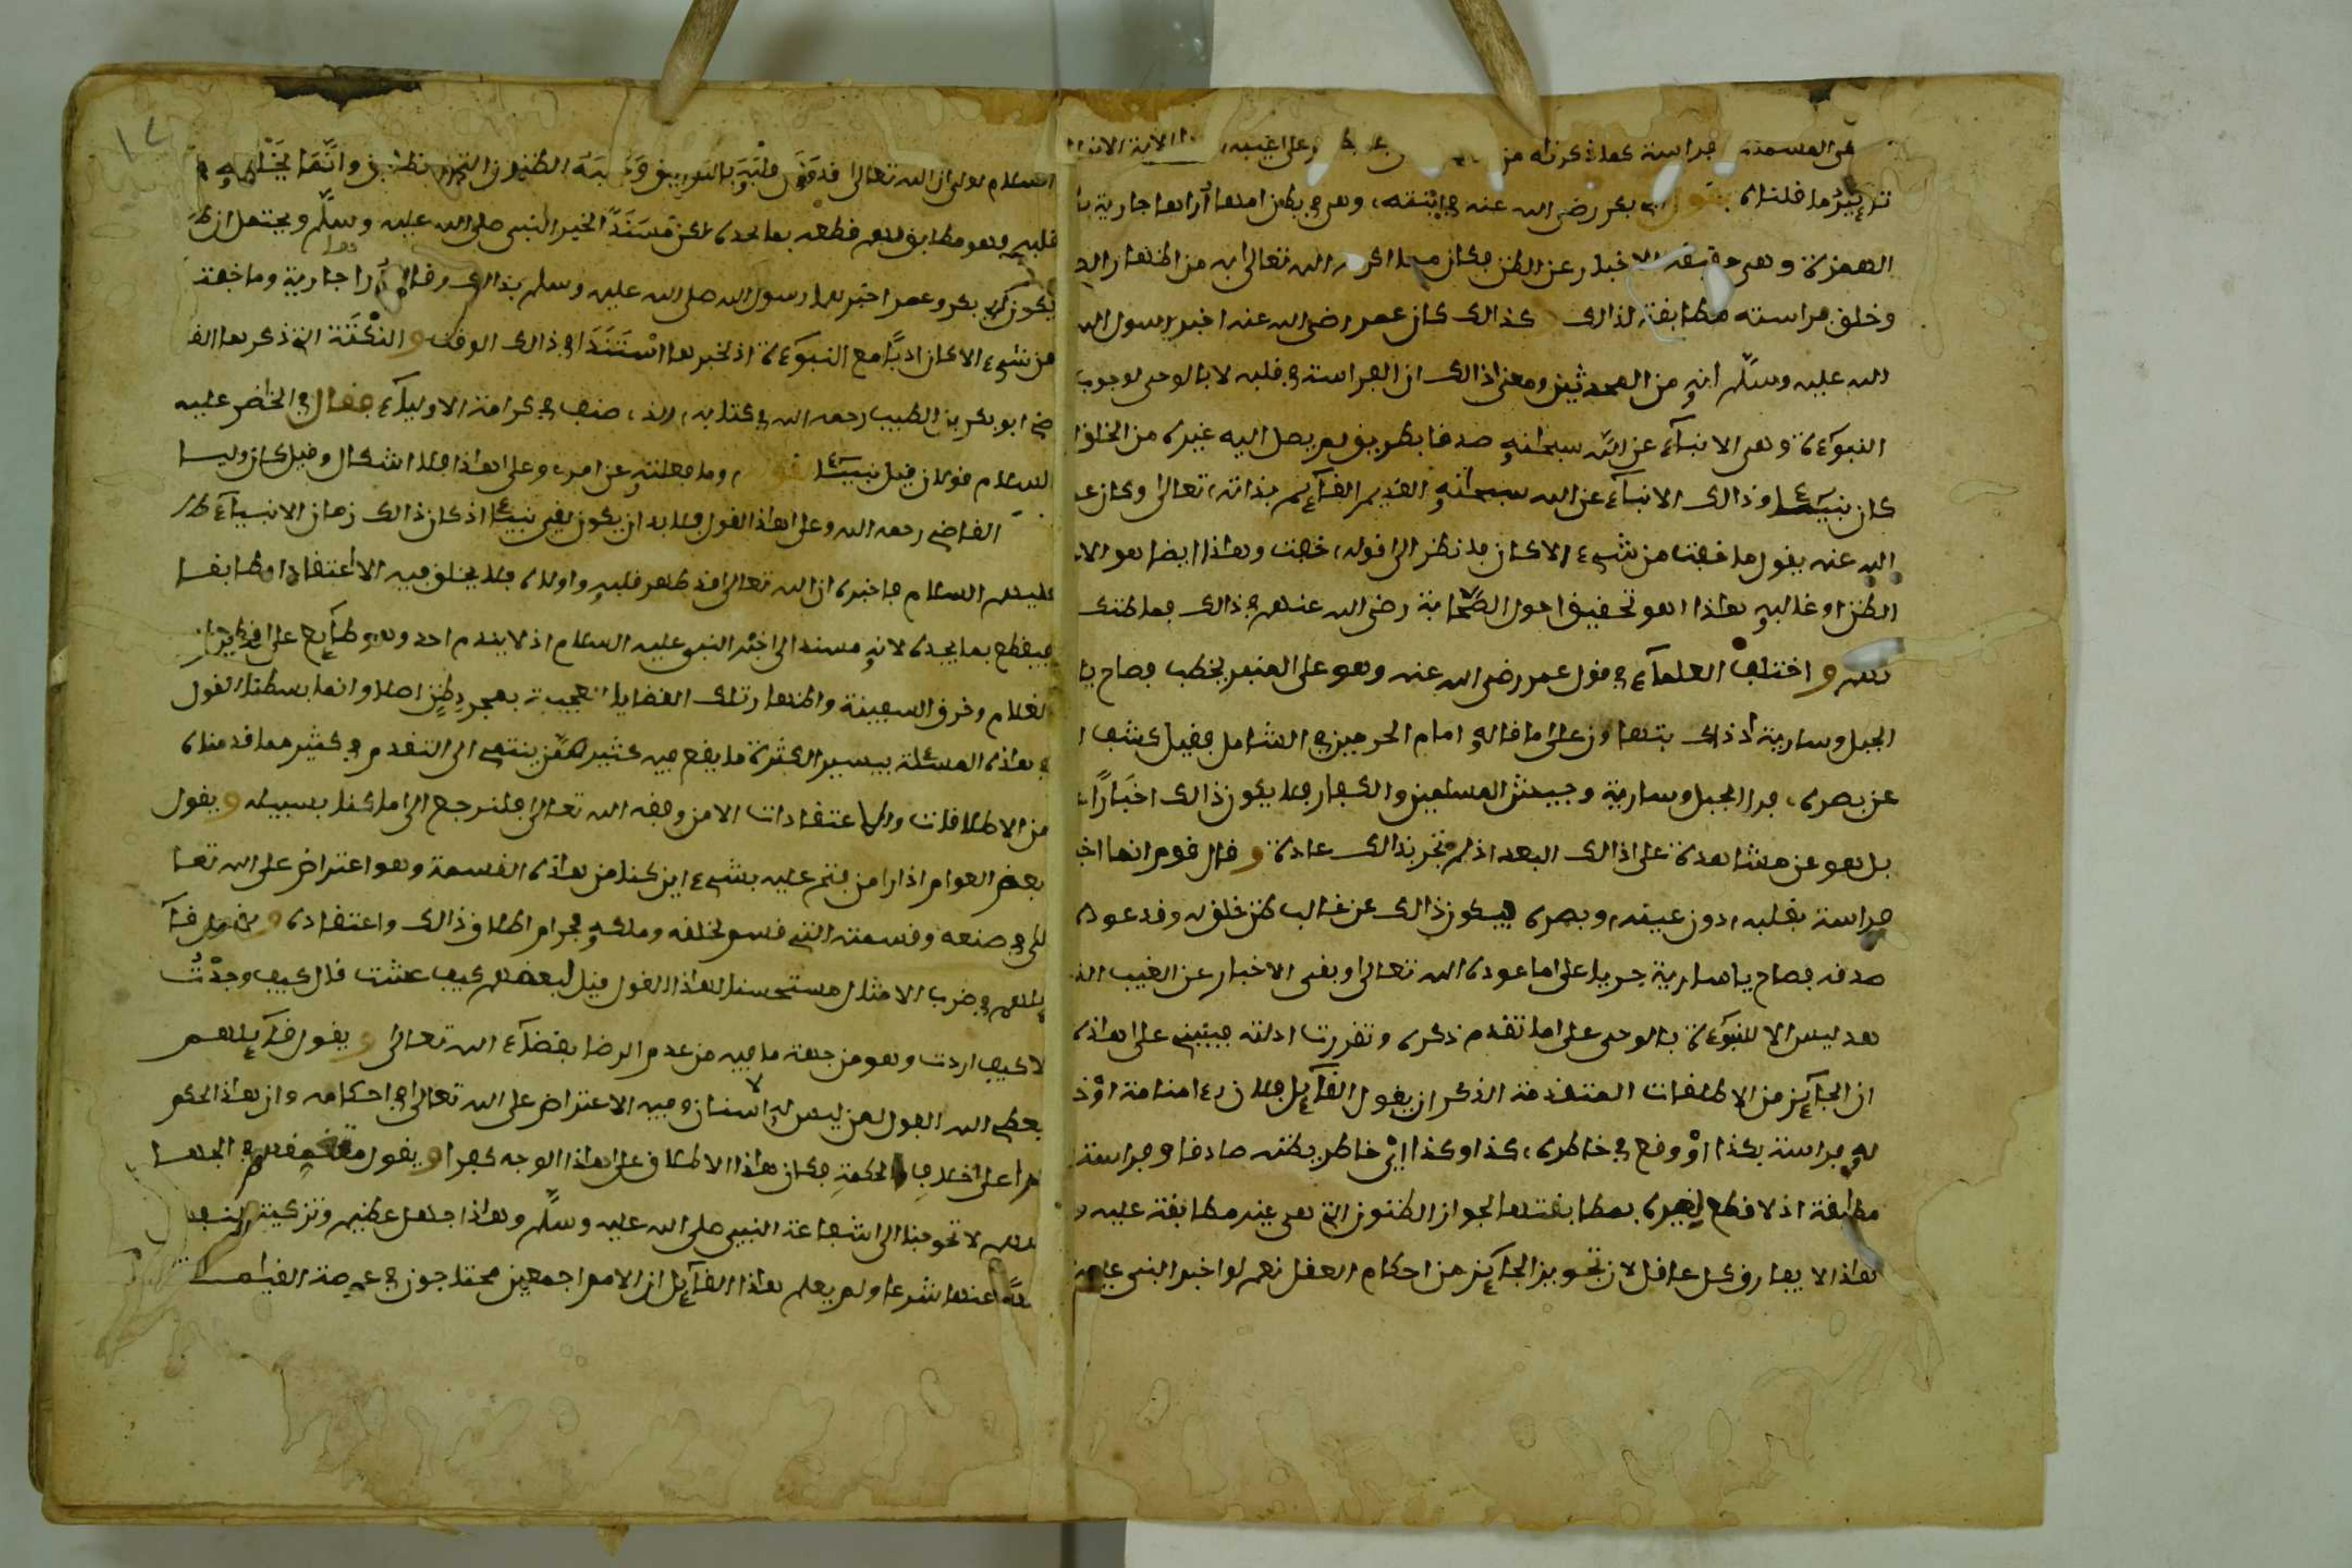 هي المسمات فراسة كما ذكرناه من
ما قلناه بقول ابي بكر رضي الله عنه في ابنته، وهي في بطن امها أراها جارية
الهمزة وهي حقيقة الاخبار عن الظن فكان مما اكرمه الله تعالى به من اظهار
وخلق فراسته مطابقة لذالك كذالك كان عمر رضي الله عنه اخبر رسول الله
الله عليه وسلم انه من المحدثين ومعنى ذالك ان الفراسة في قلبه لا بالوحي لوجوب
النبوءة وهي الانباء عن الله سبحانه صدقا بطريق لم يصل اليه غيره من الخلق
كان نبيئا وذالك الانباء عن الله سبحانه القديم القائم بذاته، تعالى وكان عمر
الله عنه يقول ما خفت من شيء الا كان فانظر الى قوله، خفت وهاذا ايضا هو الا
الظن او غالبه هاذا هو تحقيق احوال الصحابة رضي الله عنهم في ذالك فما ظنك
واختلف العلماء في قول عمر رضي الله عنه وهو على المنبر يخطب فصاح يا
الجبل وسارية اذذاك بنهاوند على ما قاله امام الحرمين في الشامل فقيل كشف
عن بصره، فرأ الجبل وسارية وجيش المسلمين والكفار فلا يكون ذالك اخبارا
بل هو عن مشاهدة على ذالك البعد اذ لم تجر بذالك عادة وقال قوم انما
فراسة بقلبه، دون عينه، وبصره فيكون ذالك عن غالب ظن خلق له وقد عوده
صدقه فصاح يا سارية جريا على ما عوده الله تعالى وبقى الاخبار عن الغيب
بعد ليس الا للنبوءة بالوحي على ما تقدم ذكره وتقررت ادلته فينبني على هاذه
ان الجائز من الاطلقات المتقدمة الذكر ان يقول القائل فلان رءا منامة او
له فراسة بكذا او وقع في خاطره، كذا وكذا اي خاطر بظنه صادفا وفراسة
مطابقة اذ لا قطع لغيره بمطابقتها لجواز الظنون التي هي غير مطابقة عليه
هاذا لا يفارق كل عاقل لان تجويز الجائز من احكام العقل نعم لو اخبر النبي عليه
السلام لولي ان الله تعالى قد قلبه بالتوفيق الظنون التي وانما يخلق
قلبه وهو مطابق لامر قطعه بما يجده لكن مستندا لخبر النبي صلى الله عليه وسلم ويحتمل ان
يكون ابي بكر وعمر اخبرهما رسول الله صلى الله عليه وسلم بذالك وقالا أرا جارية وما خفت
من شيء الا كان ادبا مع النبوءة اذ لخبرها استندا في ذالك الوقت والنكتة التي ذكرها القا
ضي ابو بكر بن الطيب رحمه الله في كتابه، الذي صنف في كرامة الاولياء فقال في الخضر عليه
السلام قولان قيل نبيئا لقوله، وما فعلته عن امري وعلى هاذا فلا اشكال وقيل كان وليا
القاضي رحمه الله وعلى هاذا القول فلا بد ان يكون لقي نبيئا اذ كان ذالك زمان الانبياء
عليهم السلام فاخبره ان الله تعالى قد طهر قلبه واولاه فلا يخلق فيه الا اعتقادا مطابقا
فيقطع بما يجده لانه مسند الى اخبار النبي عليه السلام اذ لا يقدم احد وهو طايع على
الغلام وخرق السفينة واظهار تلك القضايا العجيبة بمجرد ظن اصلا وانما بسطنا القول
في هاذه المسئلة بيسير الكثرة ما يقع فيه كثير ممن ينتمي الى التقدم في كثير مما قدمناه
من الاطلاقات والاعتقادات الا من وفقه الله تعالى فلنرجع الى ما كنا بسبيله ويقول
بعض العوام اذا رأ من فتح عليه بشيء اين كنا من هاذه القسمة وهو اعتراض على الله تعا
لى في صنعه وقسمته التي قسم لخلقه وملكه فحرام اطلاق ذالك واعتقاده
يلهم في ضرب الامثال مستحسنا لهاذا القول قيل لبعضهم كيف عشت قال كيف وجدت
لا كيف اردت وهو من جهة ما فيه من عدم الرضا بقضاء الله تعالى ويقول قائلهم
يعطي الله الفول لمن ليس له اسنان وفيه الاعتراض على الله تعالى في احكامه وان هاذا الحكم
جرا على خلاف الحكمة فكان هاذا الاطلاق على هاذا الوجه كفرا ويقول في الجهلا
اللهم لا تحوجنا الى شفاعة النبي صلى الله عليه وسلم وهاذا جهل عظيم وتزكية
عنها شرعا ولم يعلم هاذا القائل ان الامم اجمعين محتاجون في عرصة القيامة